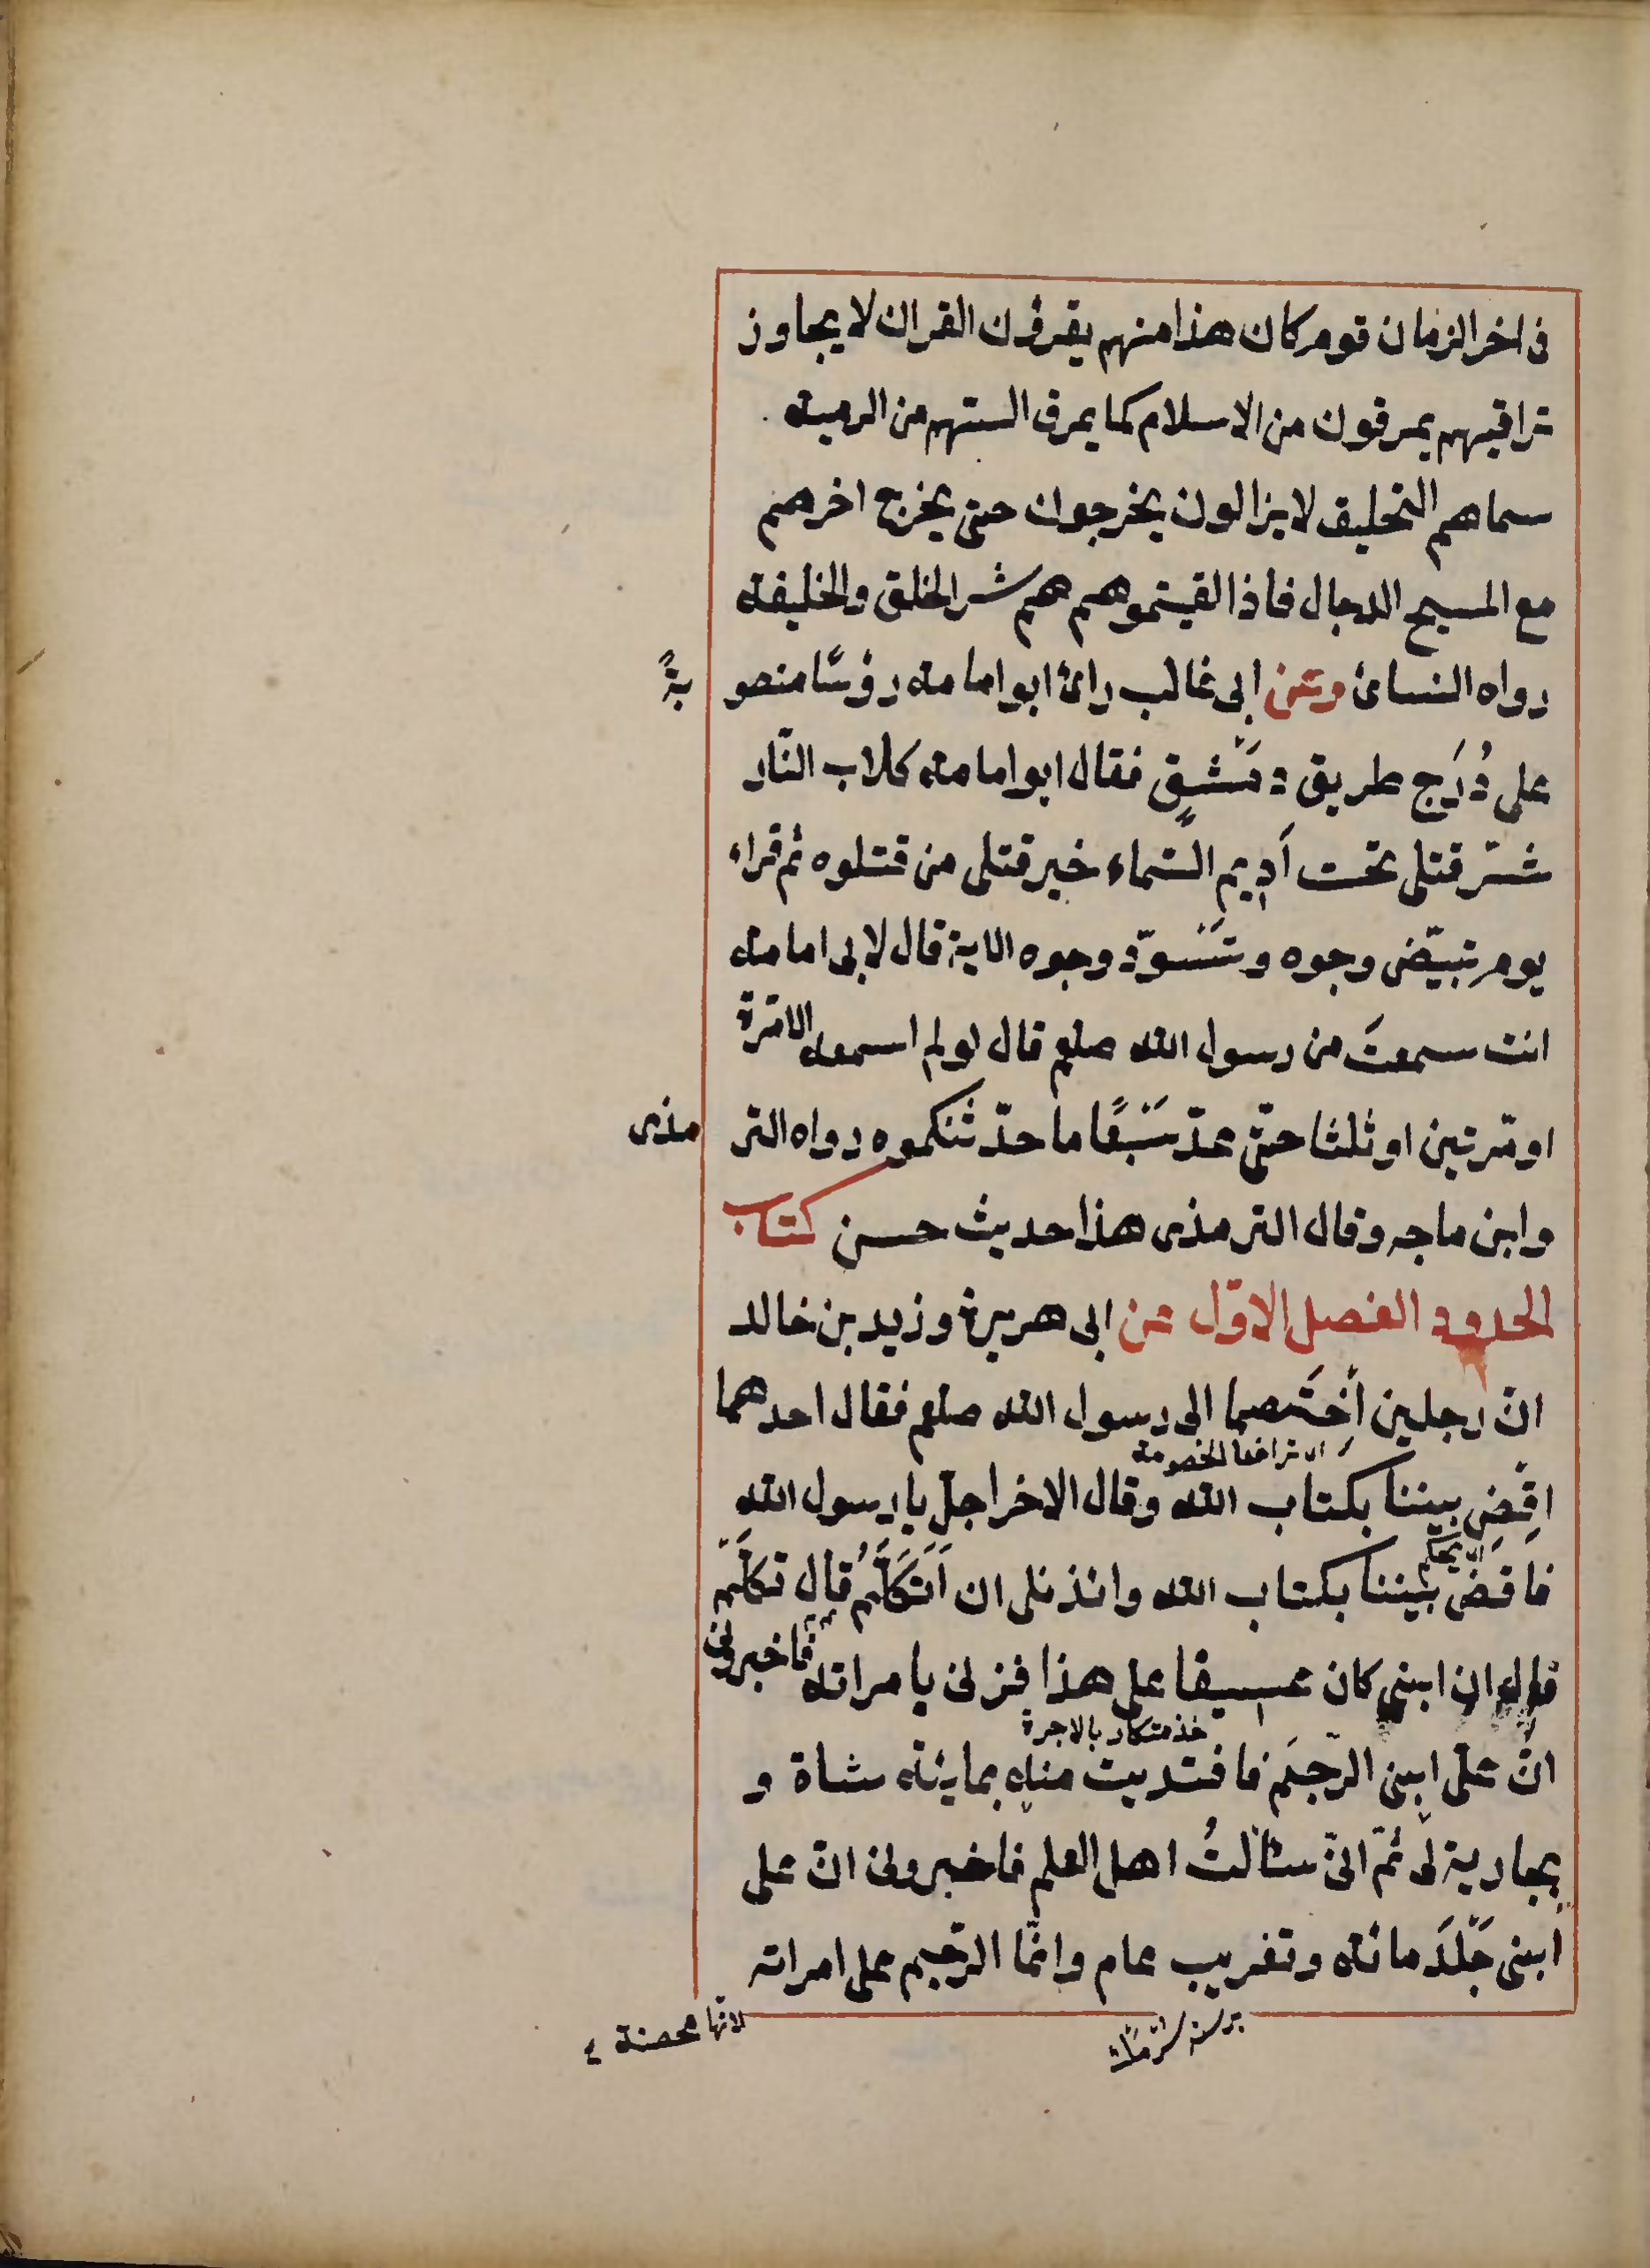 فى اخر الزمان قوم كان هذا منهم يقرؤن القران لا يجاوز
تراقيهم يمرقون من الاسلام كما يمرق السهم من الرمية
سماهم التحليق لا يزالون يخرجون حتى يخرج اخرهم
مع المسيح الدجال فاذا لقيتموهم هم شر الخلق والخليفة
رواه النسائ وعن ابى غالب رائ ابو امامة رؤسًا منصو بةً
على دُرَج طريق دمشق فقال ابو امامة كلاب النّار
شرّ قتلى تحت اَديم السّماء خير قتلى من قتلوه ثم قراء
يوم تبيّض وجوه وتسَوّد وجوه الاية قال لابى امامة
انت سمعتَ من رسول الله صلعم قال لو لم اسمعه الا مرّة
او مرّتين او ثلثا حتّى عدّ سَبْعًا ما حدّثتكموه رواه التر مذى
وابن ماجه وقال الترمذى هذا حديث حسن كتاب
الحدود الفصل الاوّل عن ابى هريرة وزيد بن خالد
انّ رجلين اَختَصما الى رسول الله صلعم فقال احدهما
اى ترافعا للخصومة
اقضِ بيننا بكتاب الله وقال الاخر اجل يا رسول الله
فاقض بيننا بكتاب الله وائذن لى ان اَتَكَلَّمُ قال تكلّم
قال ان ابنى كان عسيفا على هذا فزنى بامراته فاخبرونى
انّ على ابنى الرّجمَ فافتديت منه بمائة شاة و
بجارية لى ثمّ انّى سئالتُ اهل العلم فاخبرونى انّ على
ابنى جَلْدَ مائة وتغريب عام وانّما الرّجم على امراته
لانّها محصنة